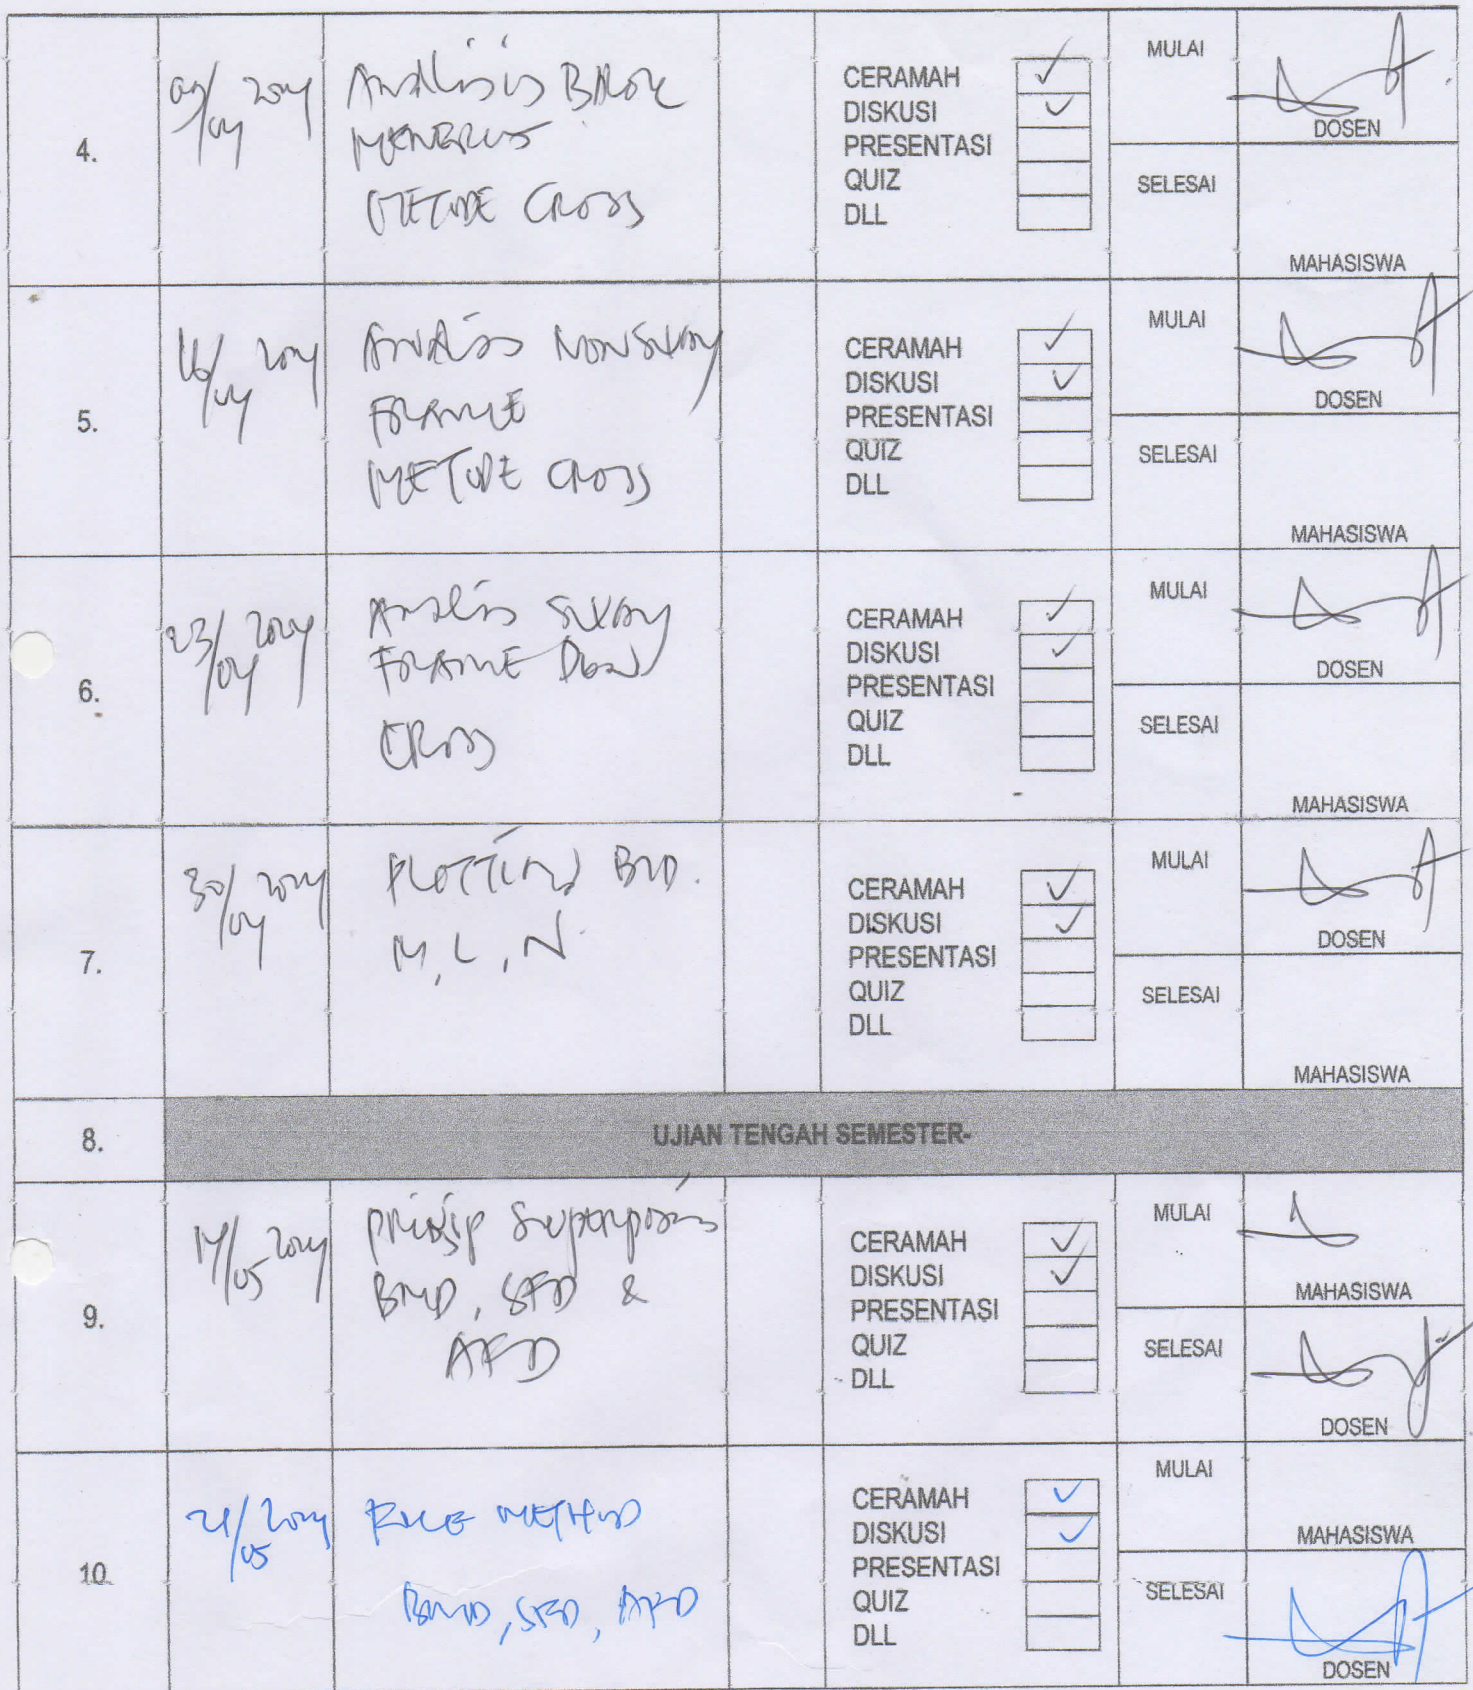 4.
09/04 2024
Analisis Balok
MENERUS
METODE CROSS
CERAMAH
DISKUSI
PRESENTASI
QUIZ
DLL
MULAI
DOSEN
SELESAI
MAHASISWA
5.
16/04 2024
Analisis NONSWAY
FRAME
METODE CROSS
CERAMAH
DISKUSI
PRESENTASI
QUIZ
DLL
MULAI
DOSEN
SELESAI
MAHASISWA
6.
23/04 2024
Analisis SWAY
FRAME
CROSS
CERAMAH
DISKUSI
PRESENTASI
QUIZ
DLL
MULAI
DOSEN
SELESAI
MAHASISWA
7.
30/04 2024
PLOTTING BID.
M, L, N.
CERAMAH
DISKUSI
PRESENTASI
QUIZ
DLL
MULAI
DOSEN
SELESAI
MAHASISWA
8.
UJIAN TENGAH SEMESTER-
9.
14/05 2024
prinsip superposisi
BMD, SFD &
AFD
CERAMAH
DISKUSI
PRESENTASI
QUIZ
DLL
MULAI
MAHASISWA
SELESAI
DOSEN
10.
21/05 2024
METHOD
BMD, SFD, AFD
CERAMAH
DISKUSI
PRESENTASI
QUIZ
DLL
MULAI
MAHASISWA
SELESAI
DOSEN